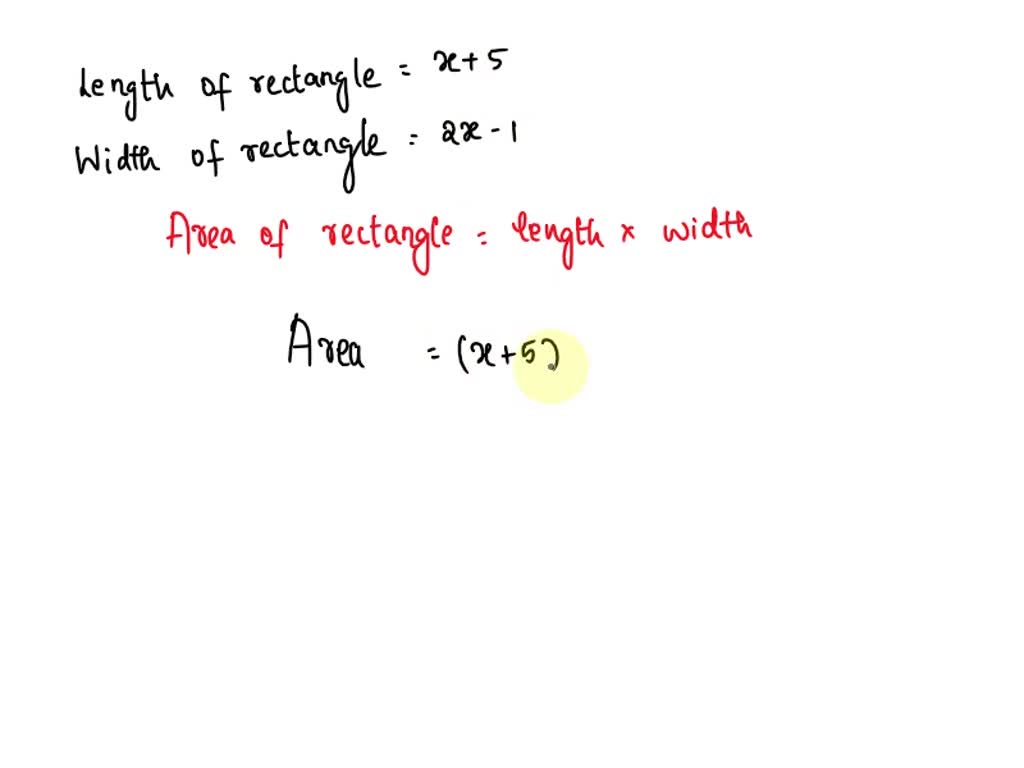 Length of rectangle = x+5
Width of rectangle = 2x-1
Area of rectangle = length × width
Area = (x+5)